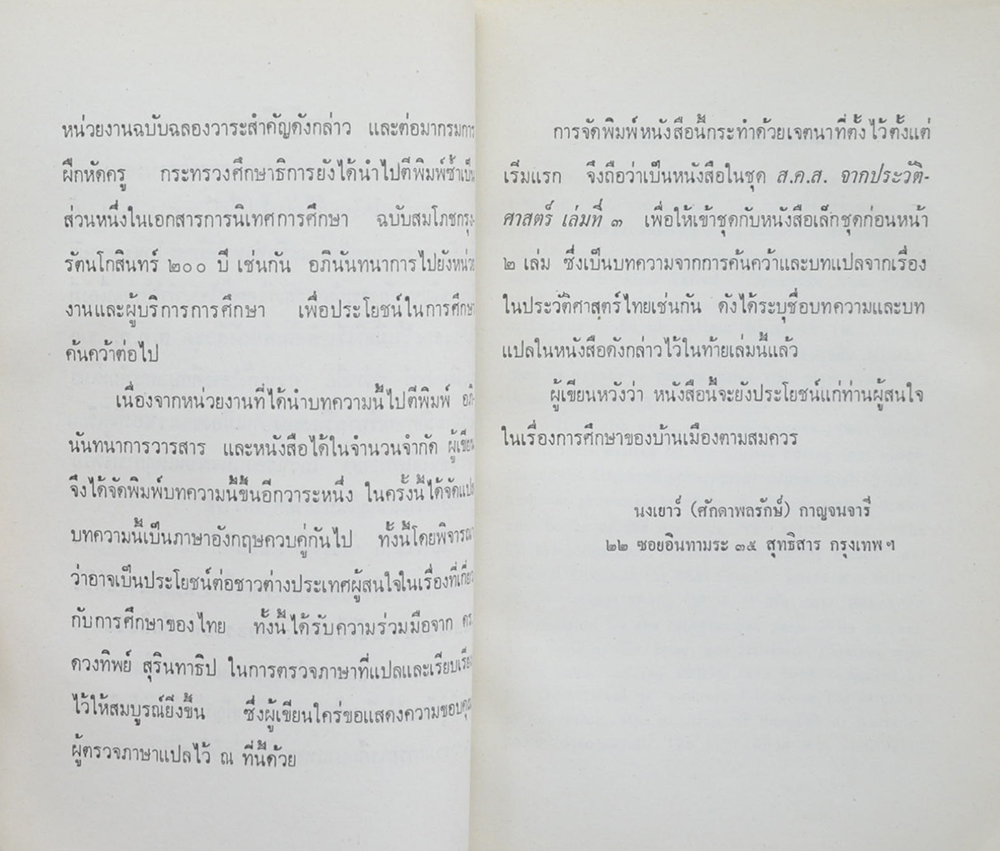 หน่วยงานฉบับฉลองวาระสำคัญดังกล่าว และต่อมากรมการ
ฝึกหัดครู กระทรวงศึกษาธิการยังได้นำไปตีพิมพ์ซ้ำเป็น
ส่วนหนึ่งในเอกสารการนิเทศการศึกษา ฉบับสมโภชกรุง-
รัตนโกสินทร์ ๒๐๐ ปี เช่นกัน อภินันทนาการไปยังหน่วย
งานและผู้บริการการศึกษา เพื่อประโยชน์ในการศึกษา
ค้นคว้าต่อไป
เนื่องจากหน่วยงานที่ได้นำบทความนี้ไปตีพิมพ์ อภิ-
นันทนาการวารสาร และหนังสือได้ในจำนวนจำกัด ผู้เขียน
จึงได้จัดพิมพ์บทความนี้ขึ้นอีกวาระหนึ่ง ในครั้งนี้ได้จัดแปล
บทความนี้เป็นภาษาอังกฤษควบคู่กันไป ทั้งนี้โดยพิจารณา
ว่าอาจเป็นประโยชน์ต่อชาวต่างประเทศผู้สนใจในเรื่องที่เกี่ยว
กับการศึกษาของไทย ทั้งนี้ได้รับความร่วมมือจาก ดร.
ดวงทิพย์ สุรินทาธิป ในการตรวจภาษาที่แปลและเรียบเรียง
ไว้ให้สมบูรณ์ยิ่งขึ้น ซึ่งผู้เขียนใคร่ขอแสดงความขอบคุณ
ผู้ตรวจภาษาแปลไว้ ณ ที่นี้ด้วย
การจัดพิมพ์หนังสือนี้กระทำด้วยเจตนาที่ตั้งไว้ตั้งแต่
เริ่มแรก จึงถือว่าเป็นหนังสือในชุด ส.ค.ส. จากประวัติ-
ศาสตร์ เล่มที่ ๓ เพื่อให้เข้าชุดกับหนังสือเล็กชุดก่อนหน้า
๒ เล่ม ซึ่งเป็นบทความจากการค้นคว้าและบทแปลจากเรื่อง
ในประวัติศาสตร์ไทยเช่นกัน ดังได้ระบุชื่อบทความและบท
แปลในหนังสือดังกล่าวไว้ในท้ายเล่มนี้แล้ว
ผู้เขียนหวังว่า หนังสือนี้จะยังประโยชน์แก่ท่านผู้สนใจ
ในเรื่องการศึกษาของบ้านเมืองตามสมควร
นงเยาว์ (ศักดาพลรักษ์) กาญจนจารี
๒๒ ซอยอินทามระ ๓๕ สุทธิสาร กรุงเทพฯ